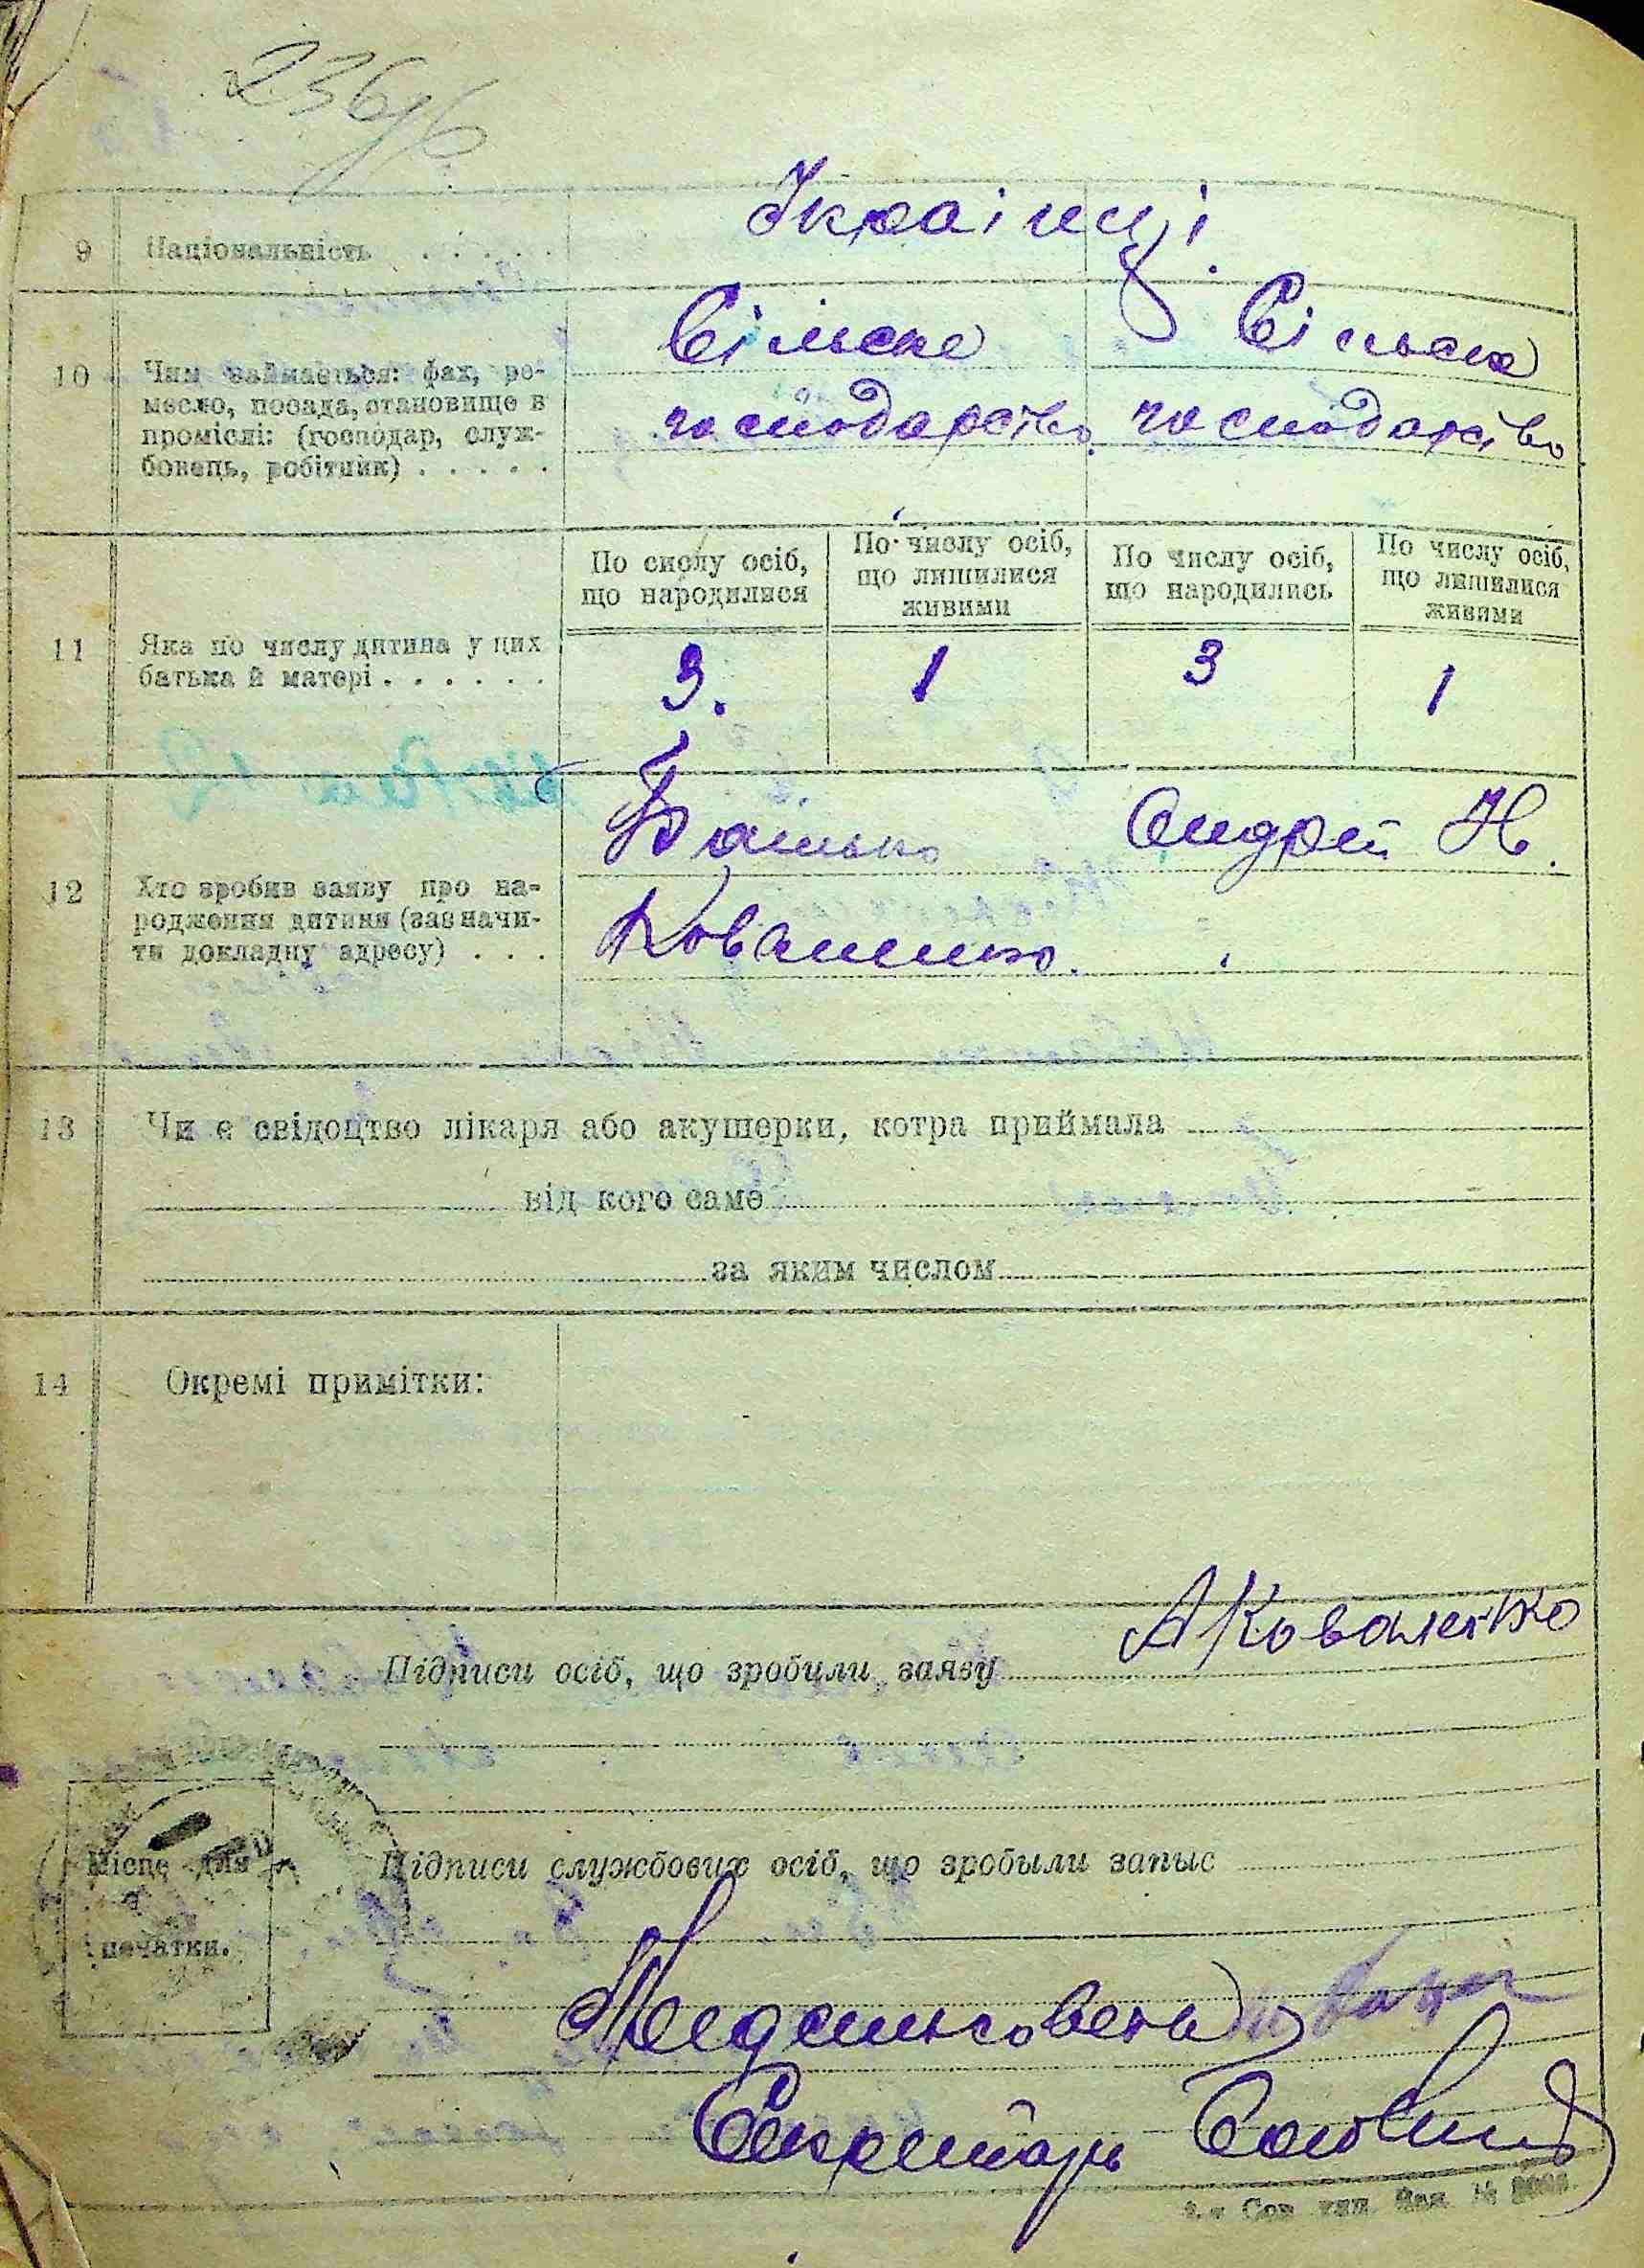 236/6
9 Національність . . . . . Українці.
10 Чим займається: фах, ре-
месло, посада, становище в
проміслі: (господар, служ-
бовець, робітник) . . . . .
Сільске Сільске
господарство. господарство.
По сислу осіб,
що народилися
По числу осіб,
що лишилися
живими
По числу осіб,
що народились
По числу осіб,
що лишилися
живими
11 Яка по числу дитина у цих
батька й матері . . . . . .
3. 1 3 1
12 Хто зробив заяву про на-
родження дитини (зазначи-
ти докладну адресу) . . .
Батько Андрей Н.
Коваленко.
13 Чи є свідоцтво лікаря або акушерки, котра приймала
від кого саме
за яким числом
14 Окремі примітки:
АКоваленко
Підписи осіб, що зробили заяву
Місце для
печатки.
Підписи службових осіб, що зробыли запыс
Секретарь